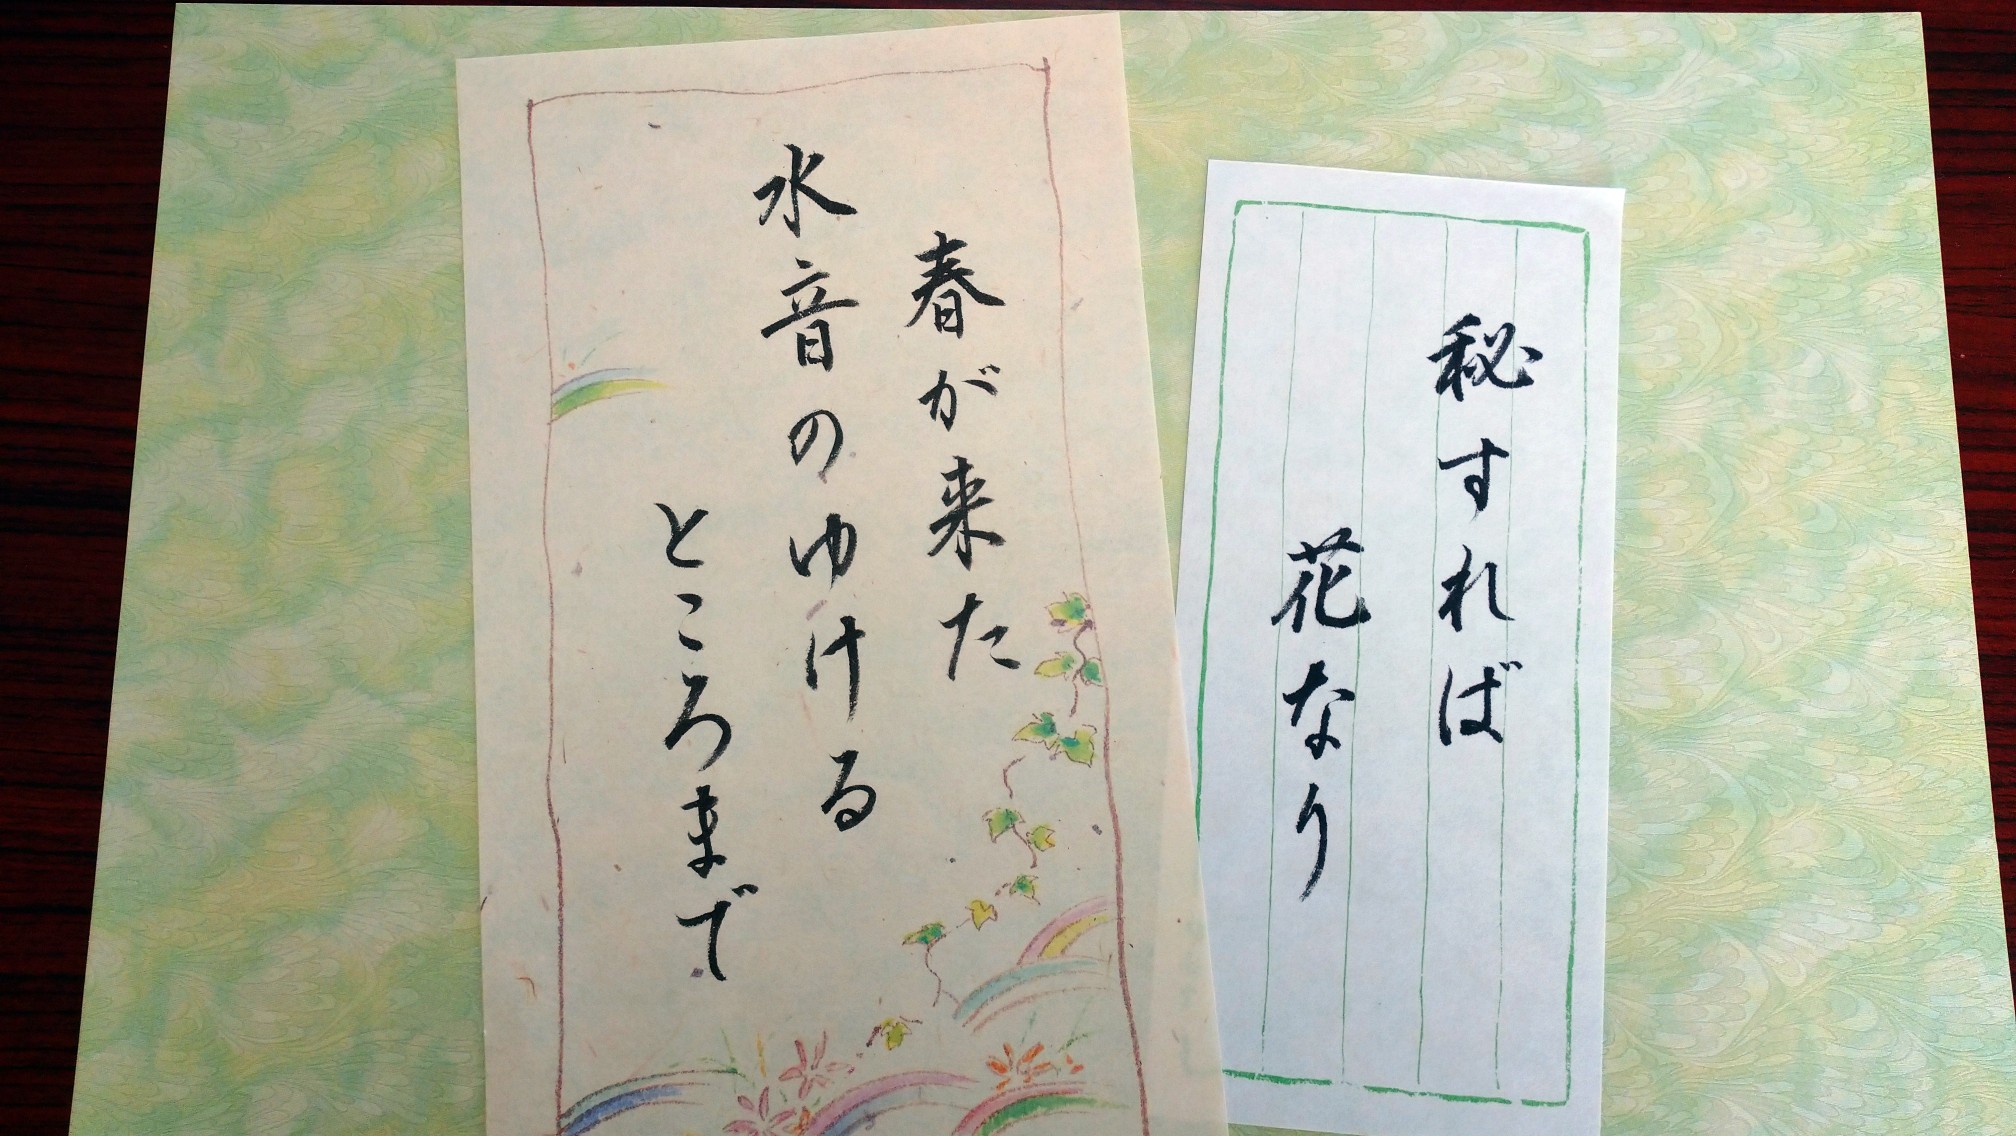 秘すれば
花なり
春が来た
水音のゆける
ところまで